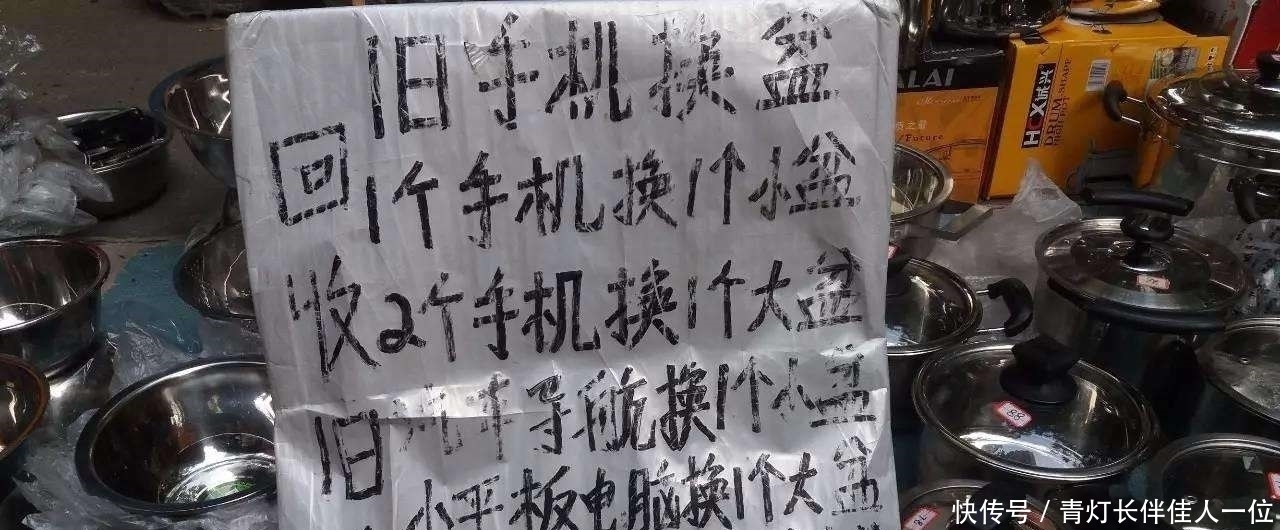 旧手机换盆
回1个手机换1个小盆
收2个手机换1个大盆
旧汽车导航换1个小盆
小平板电脑换1个大盆
ALAI
Future
HCX诚兴
DRUM SHAPE
88
快传号 / 青灯长伴佳人一位